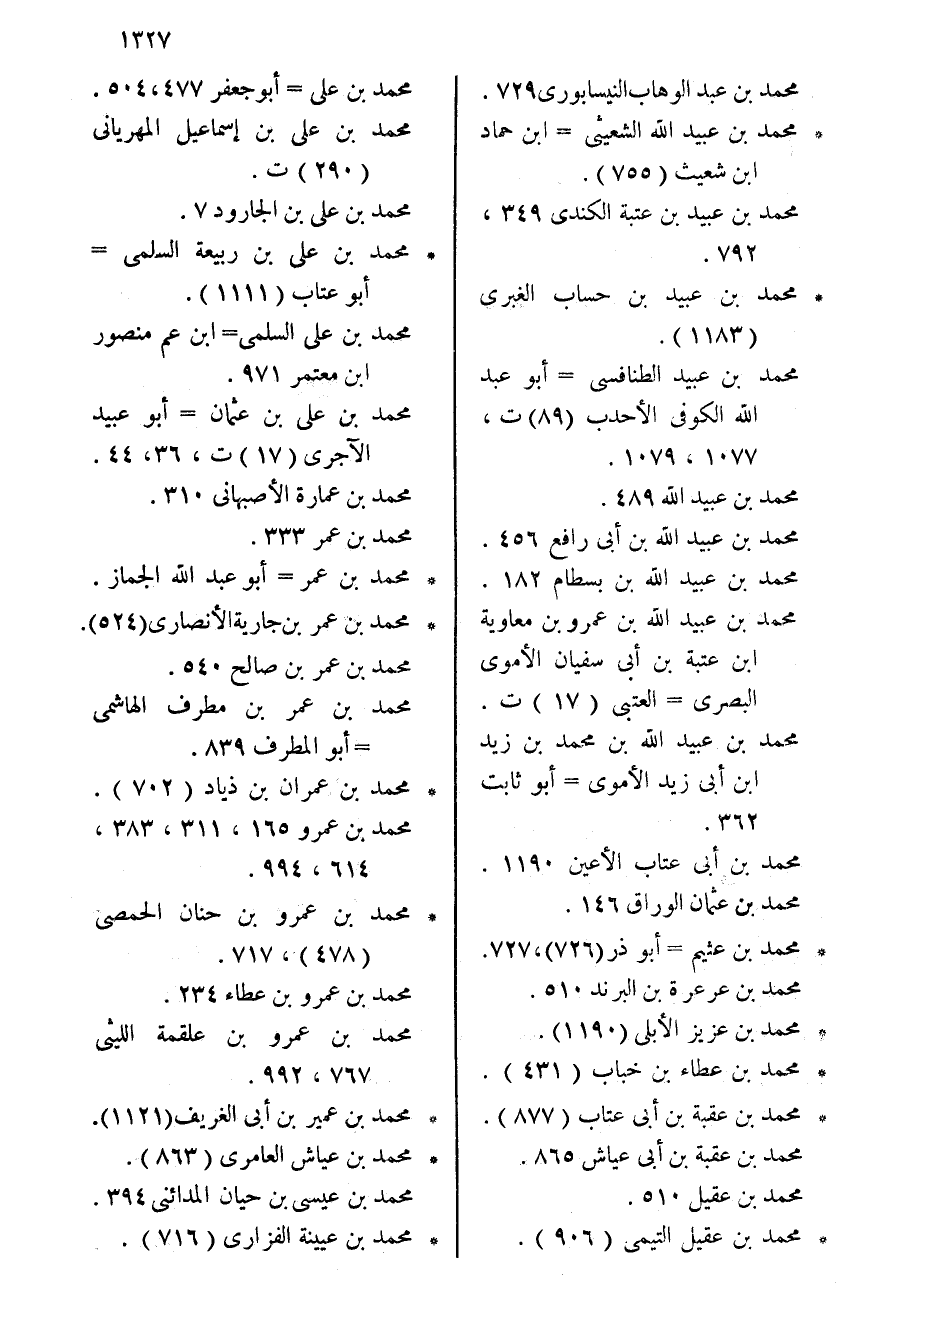 ١٣٢٧
محمد بن عبد الوهاب النيسابورى ٧٢٩ .
* محمد بن عبيد الله الشعيثى = ابن حماد
ابن شعيث ( ٧٥٥ ) .
محمد بن عبيد بن عتبة الكندى ٣٤٩ ،
٧٩٢ .
* محمد بن عبيد بن حساب الغبرى
( ١١٨٣ ) .
محمد بن عبيد الطنافسى = أبو عبد
الله الكوفى الأحدب ( ٨٩ ) ت ،
١٠٧٧ ، ١٠٧٩ .
محمد بن عبيد الله ٤٨٩ .
محمد بن عبيد الله بن أبى رافع ٤٥٦ .
محمد بن عبيد الله بن بسطام ١٨٢ .
محمد بن عبيد الله بن عمرو بن معاوية
ابن عتبة بن أبى سفيان الأموى
البصرى = العتبى ( ١٧ ) ت .
محمد بن عبيد الله بن محمد بن زيد
ابن أبى زيد الأموى = أبو ثابت
٣٦٢ .
محمد بن أبى عتاب الأعين ١١٩٠ .
محمد بن عثمان الوراق ١٤٦ .
* محمد بن عثيم = أبو ذر (٧٢٦) ، ٧٢٧.
محمد بن عرعرة بن البرند ٥١٠ .
* محمد بن عزيز الأبلى (١١٩٠) .
* محمد بن عطاء بن خباب ( ٤٣١ ) .
* محمد بن عقبة بن أبى عتاب ( ٨٧٧ ) .
محمد بن عقبة بن أبى عياش ٨٦٥ .
محمد بن عقيل ٥١٠ .
* محمد بن عقيل التيمى ( ٩٠٦ ) .
محمد بن على = أبو جعفر ٤٧٧ ، ٥٠٤ .
محمد بن على بن إسماعيل المهريانى
( ٢٩٠ ) ت .
محمد بن على بن الجارود ٧ .
* محمد بن على بن ربيعة السلمى =
أبو عتاب ( ١١١١ ) .
محمد بن على السلمى = ابن عم منصور
ابن معتمر ٩٧١ .
محمد بن على بن عثمان = أبو عبيد
الآجرى ( ١٧ ) ت ، ٣٦ ، ٤٤ .
محمد بن عمارة الأصبهانى ٣١٠ .
محمد بن عمر ٣٣٣ .
* محمد بن عمر = أبو عبد الله الجماز .
* محمد بن عمر بن جارية الأنصارى (٥٢٤).
محمد بن عمر بن صالح ٥٤٠ .
محمد بن عمر بن مطرف الهاشمى
= أبو المطرف ٨٣٩ .
* محمد بن عمران بن ذياد ( ٧٠٢ ) .
محمد بن عمرو ١٦٥ ، ٣١١ ، ٣٨٣ ،
٦١٤ ، ٩٩٤ .
* محمد بن عمرو بن حنان الحمصى
( ٤٧٨ ) ، ٧١٧ .
محمد بن عمرو بن عطاء ٢٣٤ .
محمد بن عمرو بن علقمة الليثى
٧٦٧ ، ٩٩٢ .
* محمد بن عمير بن أبى الغريف (١١٢١).
* محمد بن عياش العامرى ( ٨٦٣ ) .
محمد بن عيسى بن حيان المدائنى ٣٩٤ .
* محمد بن عيينة الفزارى ( ٧١٦ ) .